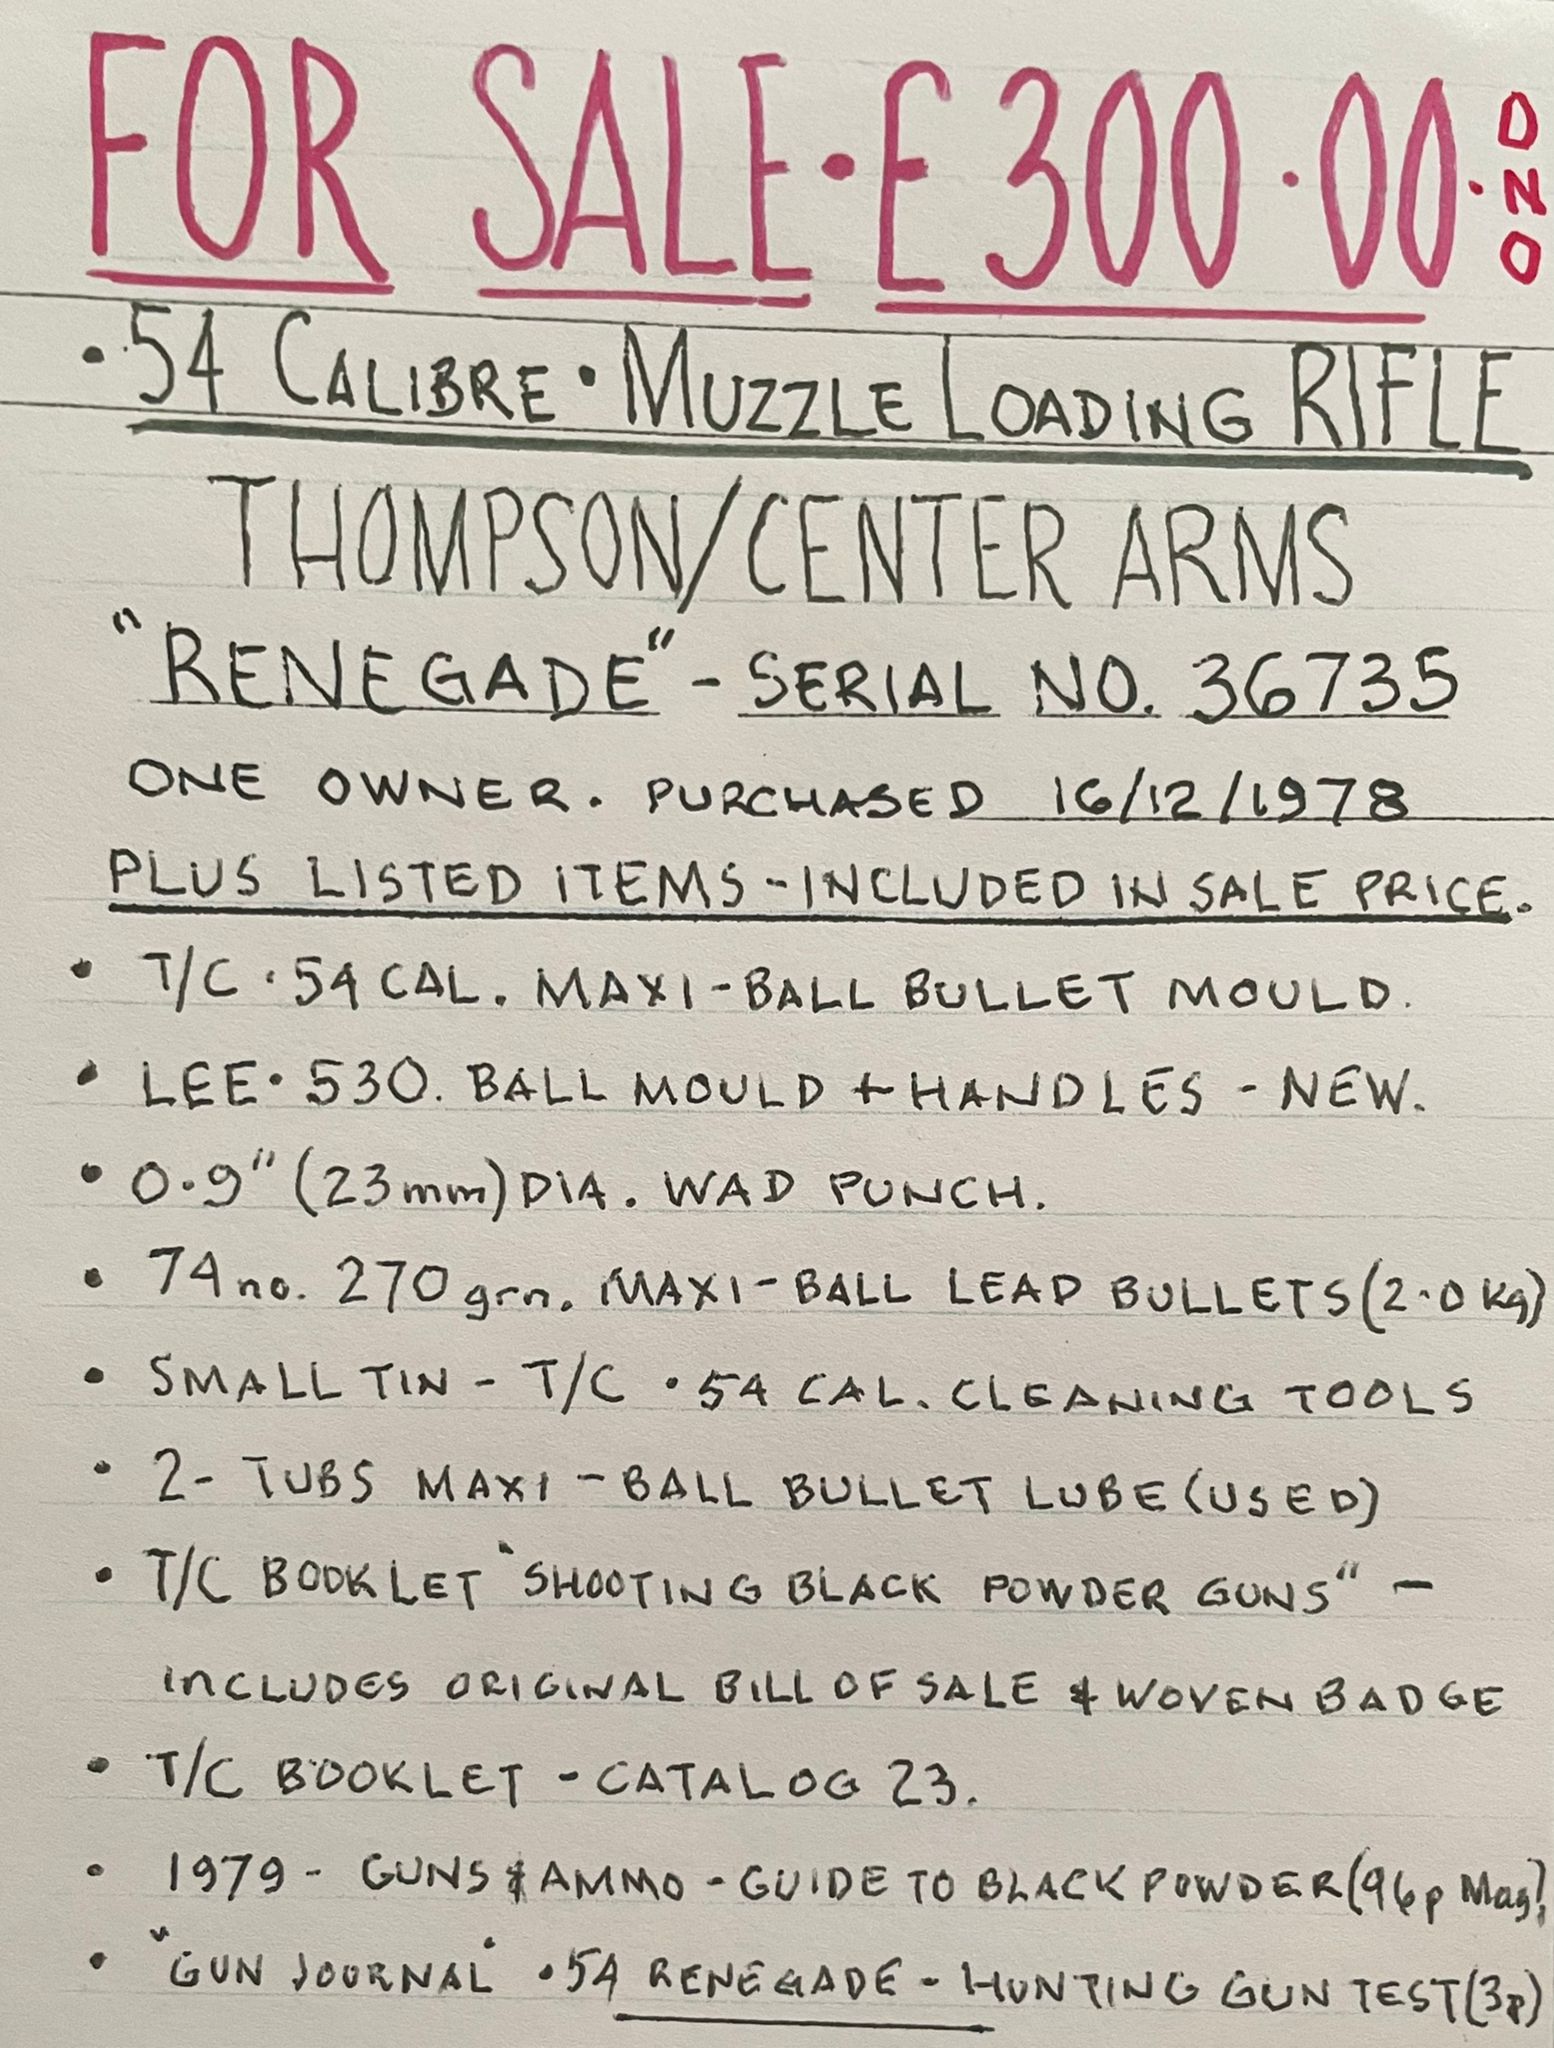 FOR SALE · £300·00 · ONO
·54 CALIBRE · MUZZLE LOADING RIFLE
THOMPSON/CENTER ARMS
"RENEGADE" - SERIAL NO. 36735
ONE OWNER. PURCHASED 16/12/1978
PLUS LISTED ITEMS - INCLUDED IN SALE PRICE.
• T/C ·54 CAL. MAXI-BALL BULLET MOULD.
• LEE · 530. BALL MOULD + HANDLES - NEW.
• 0·9" (23mm) DIA. WAD PUNCH.
• 74 no. 270 grn. MAXI-BALL LEAD BULLETS (2·0 Kg)
• SMALL TIN - T/C ·54 CAL. CLEANING TOOLS
• 2- TUBS MAXI-BALL BULLET LUBE (USED)
• T/C BOOKLET "SHOOTING BLACK POWDER GUNS" -
INCLUDES ORIGINAL BILL OF SALE & WOVEN BADGE
• T/C BOOKLET - CATALOG 23.
• 1979 - GUNS & AMMO - GUIDE TO BLACK POWDER (96p Mag)
• "GUN JOURNAL" ·54 RENEGADE - HUNTING GUN TEST (3p)